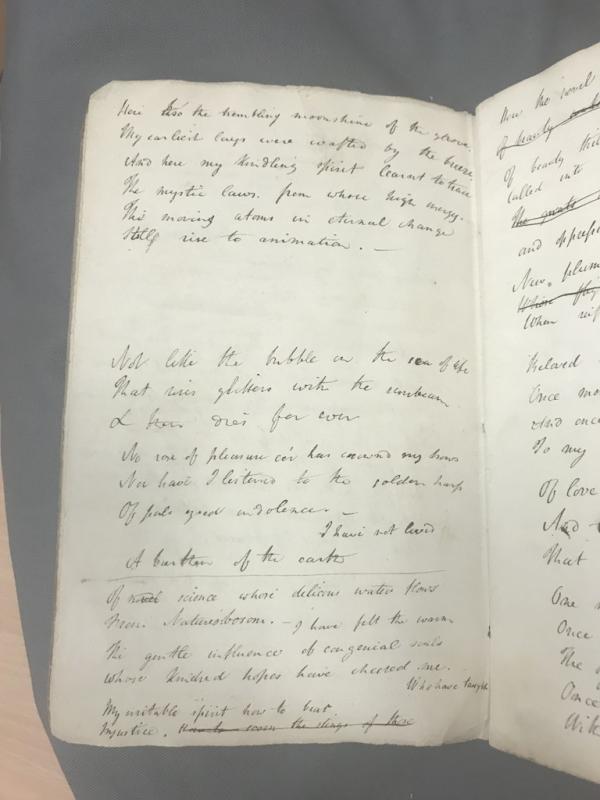 Here tho' the trembling moonshine of the grove
My earliest lays were wafted by the breeze
And here my kindling spirit learnt to trace
The mystic laws. from whose high energy.
The moving atoms in eternal change
Still rise to animation. —
Not like the bubble on the sea of life
That rises glitters with the sunbeam
& dies for ever
No rose of pleasure e'er has crowned my brows
Nor have I listened to the golden harp
Of pale eyed indolence. —
I have not lived
A burthen of the earth
Of science whose delicious water flows
From Natures bosom. — I have felt the warm
The gentle influence of congenial souls
whose kindred hopes have cheered me.
Who have taught
My irritable spirit how to bear
Injustice. How to scorn the stings of those
Now the
Of beauty
Of beauty
called into
The
and
New. plum
Whose
When
Beloved
Once mo
And once
To my
Of love
And
That
One
Once
The
Once